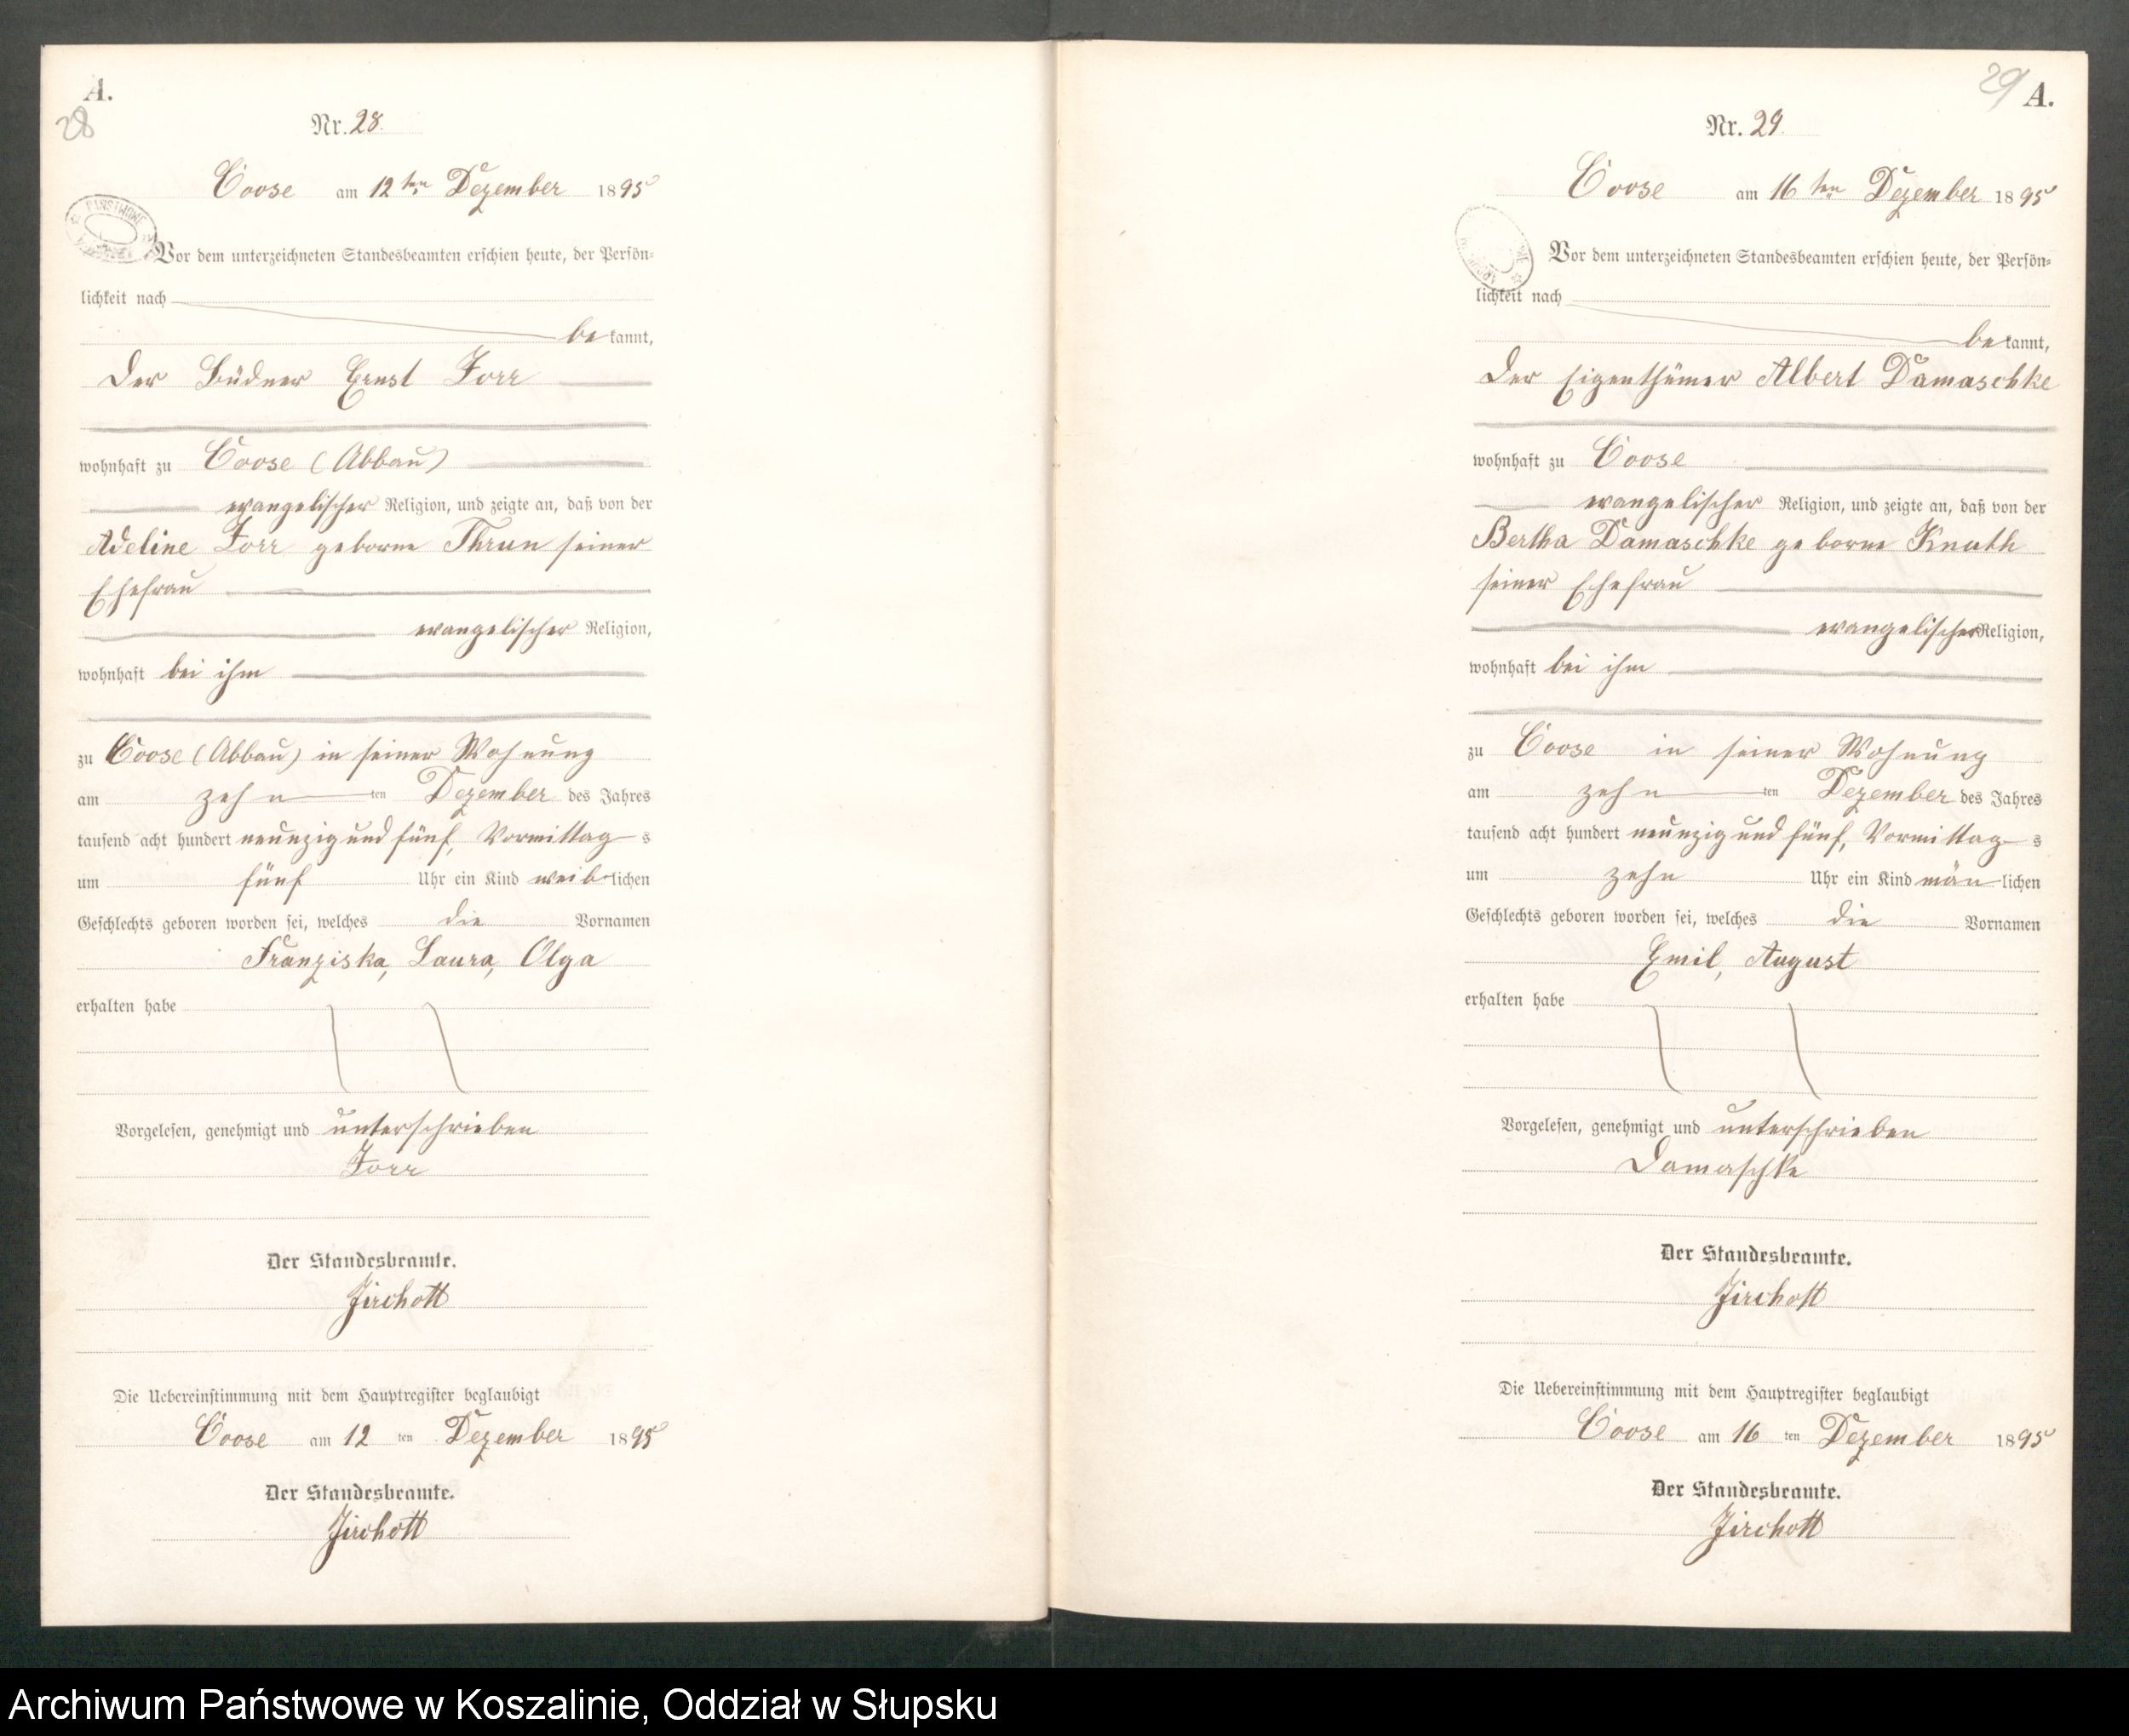 A.
28
Nr. 28.
Coose am 12ten Dezember 1895
Vor dem unterzeichneten Standesbeamten erschien heute, der Persön-
lichkeit nach
bekannt,
der Büdner Ernst Jorr
wohnhaft zu Coose (Abbau)
evangelischer Religion, und zeigte an, daß von der
Adeline Jorr geborne Thrun seiner
Ehefrau
evangelischer Religion,
wohnhaft bei ihm
zu Coose (Abbau) in seiner Wohnung
am zehn ten Dezember des Jahres
tausend acht hundert neunzig und fünf, Vormittags
um fünf Uhr ein Kind weiblichen
Geschlechts geboren worden sei, welches die Vornamen
Franziska, Laura, Olga
erhalten habe
Vorgelesen, genehmigt und unterschrieben
Jorr
Der Standesbeamte.
Jirchott
Die Uebereinstimmung mit dem Hauptregister beglaubigt
Coose am 12 ten Dezember 1895
Der Standesbeamte.
Jirchott
29 A.
Nr. 29.
Coose am 16ten Dezember 1895
Vor dem unterzeichneten Standesbeamten erschien heute, der Persön-
lichkeit nach
bekannt,
der Eigenthümer Albert Damaschke
wohnhaft zu Coose
evangelischer Religion, und zeigte an, daß von der
Bertha Damaschke geborne Knuth
seiner Ehefrau
evangelischer Religion,
wohnhaft bei ihm
zu Coose in seiner Wohnung
am zehn ten Dezember des Jahres
tausend acht hundert neunzig und fünf, Vormittags
um zehn Uhr ein Kind mänlichen
Geschlechts geboren worden sei, welches die Vornamen
Emil, August
erhalten habe
Vorgelesen, genehmigt und unterschrieben
Damaschke
Der Standesbeamte.
Jirchott
Die Uebereinstimmung mit dem Hauptregister beglaubigt
Coose am 16 ten Dezember 1895
Der Standesbeamte.
Jirchott
Archiwum Państwowe w Koszalinie, Oddział w Słupsku